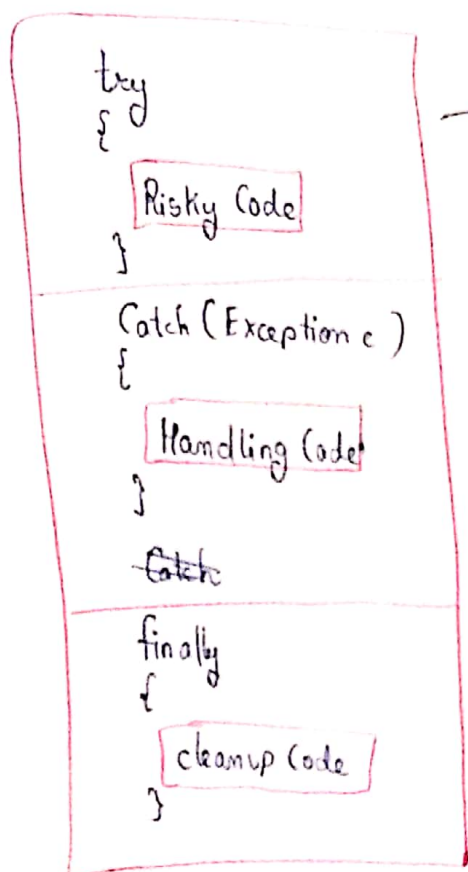 try
{
Risky Code
}
Catch (Exception e)
{
Handling Code
}
Catch
finally
{
cleanup Code
}